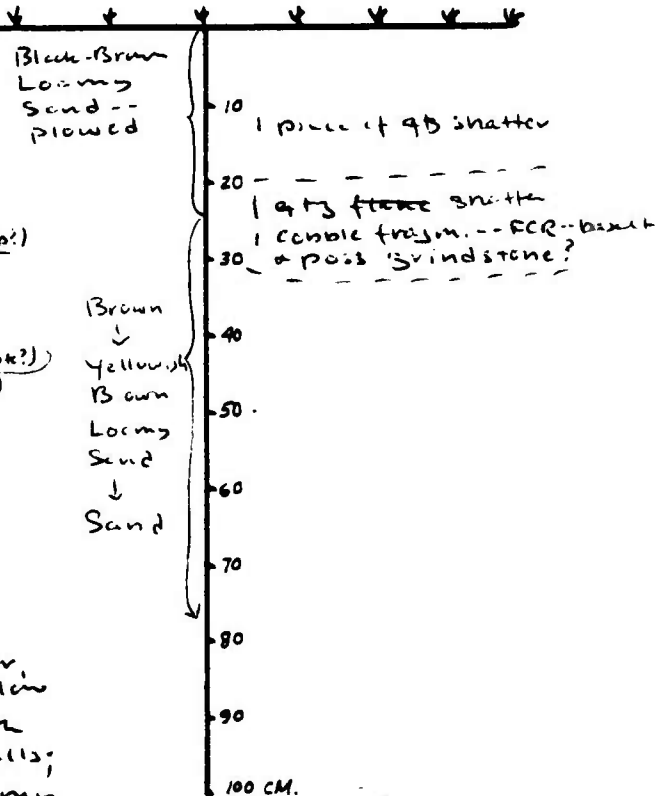 Black-Brown
Loamy
Sand--
plowed
10
1 piece of qtz shatter
20
1 qtz flake shatter
1 cobble fragm. -- FCR--basalt
30
& poss grindstone?
Brown
↓
Yellowish
Brown
Loamy
Sand
↓
Sand
40
50
60
70
80
90
100 CM.